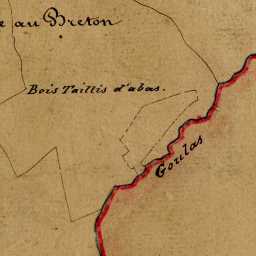 e au Breton
Bois Taillis d'abas.
Goulas